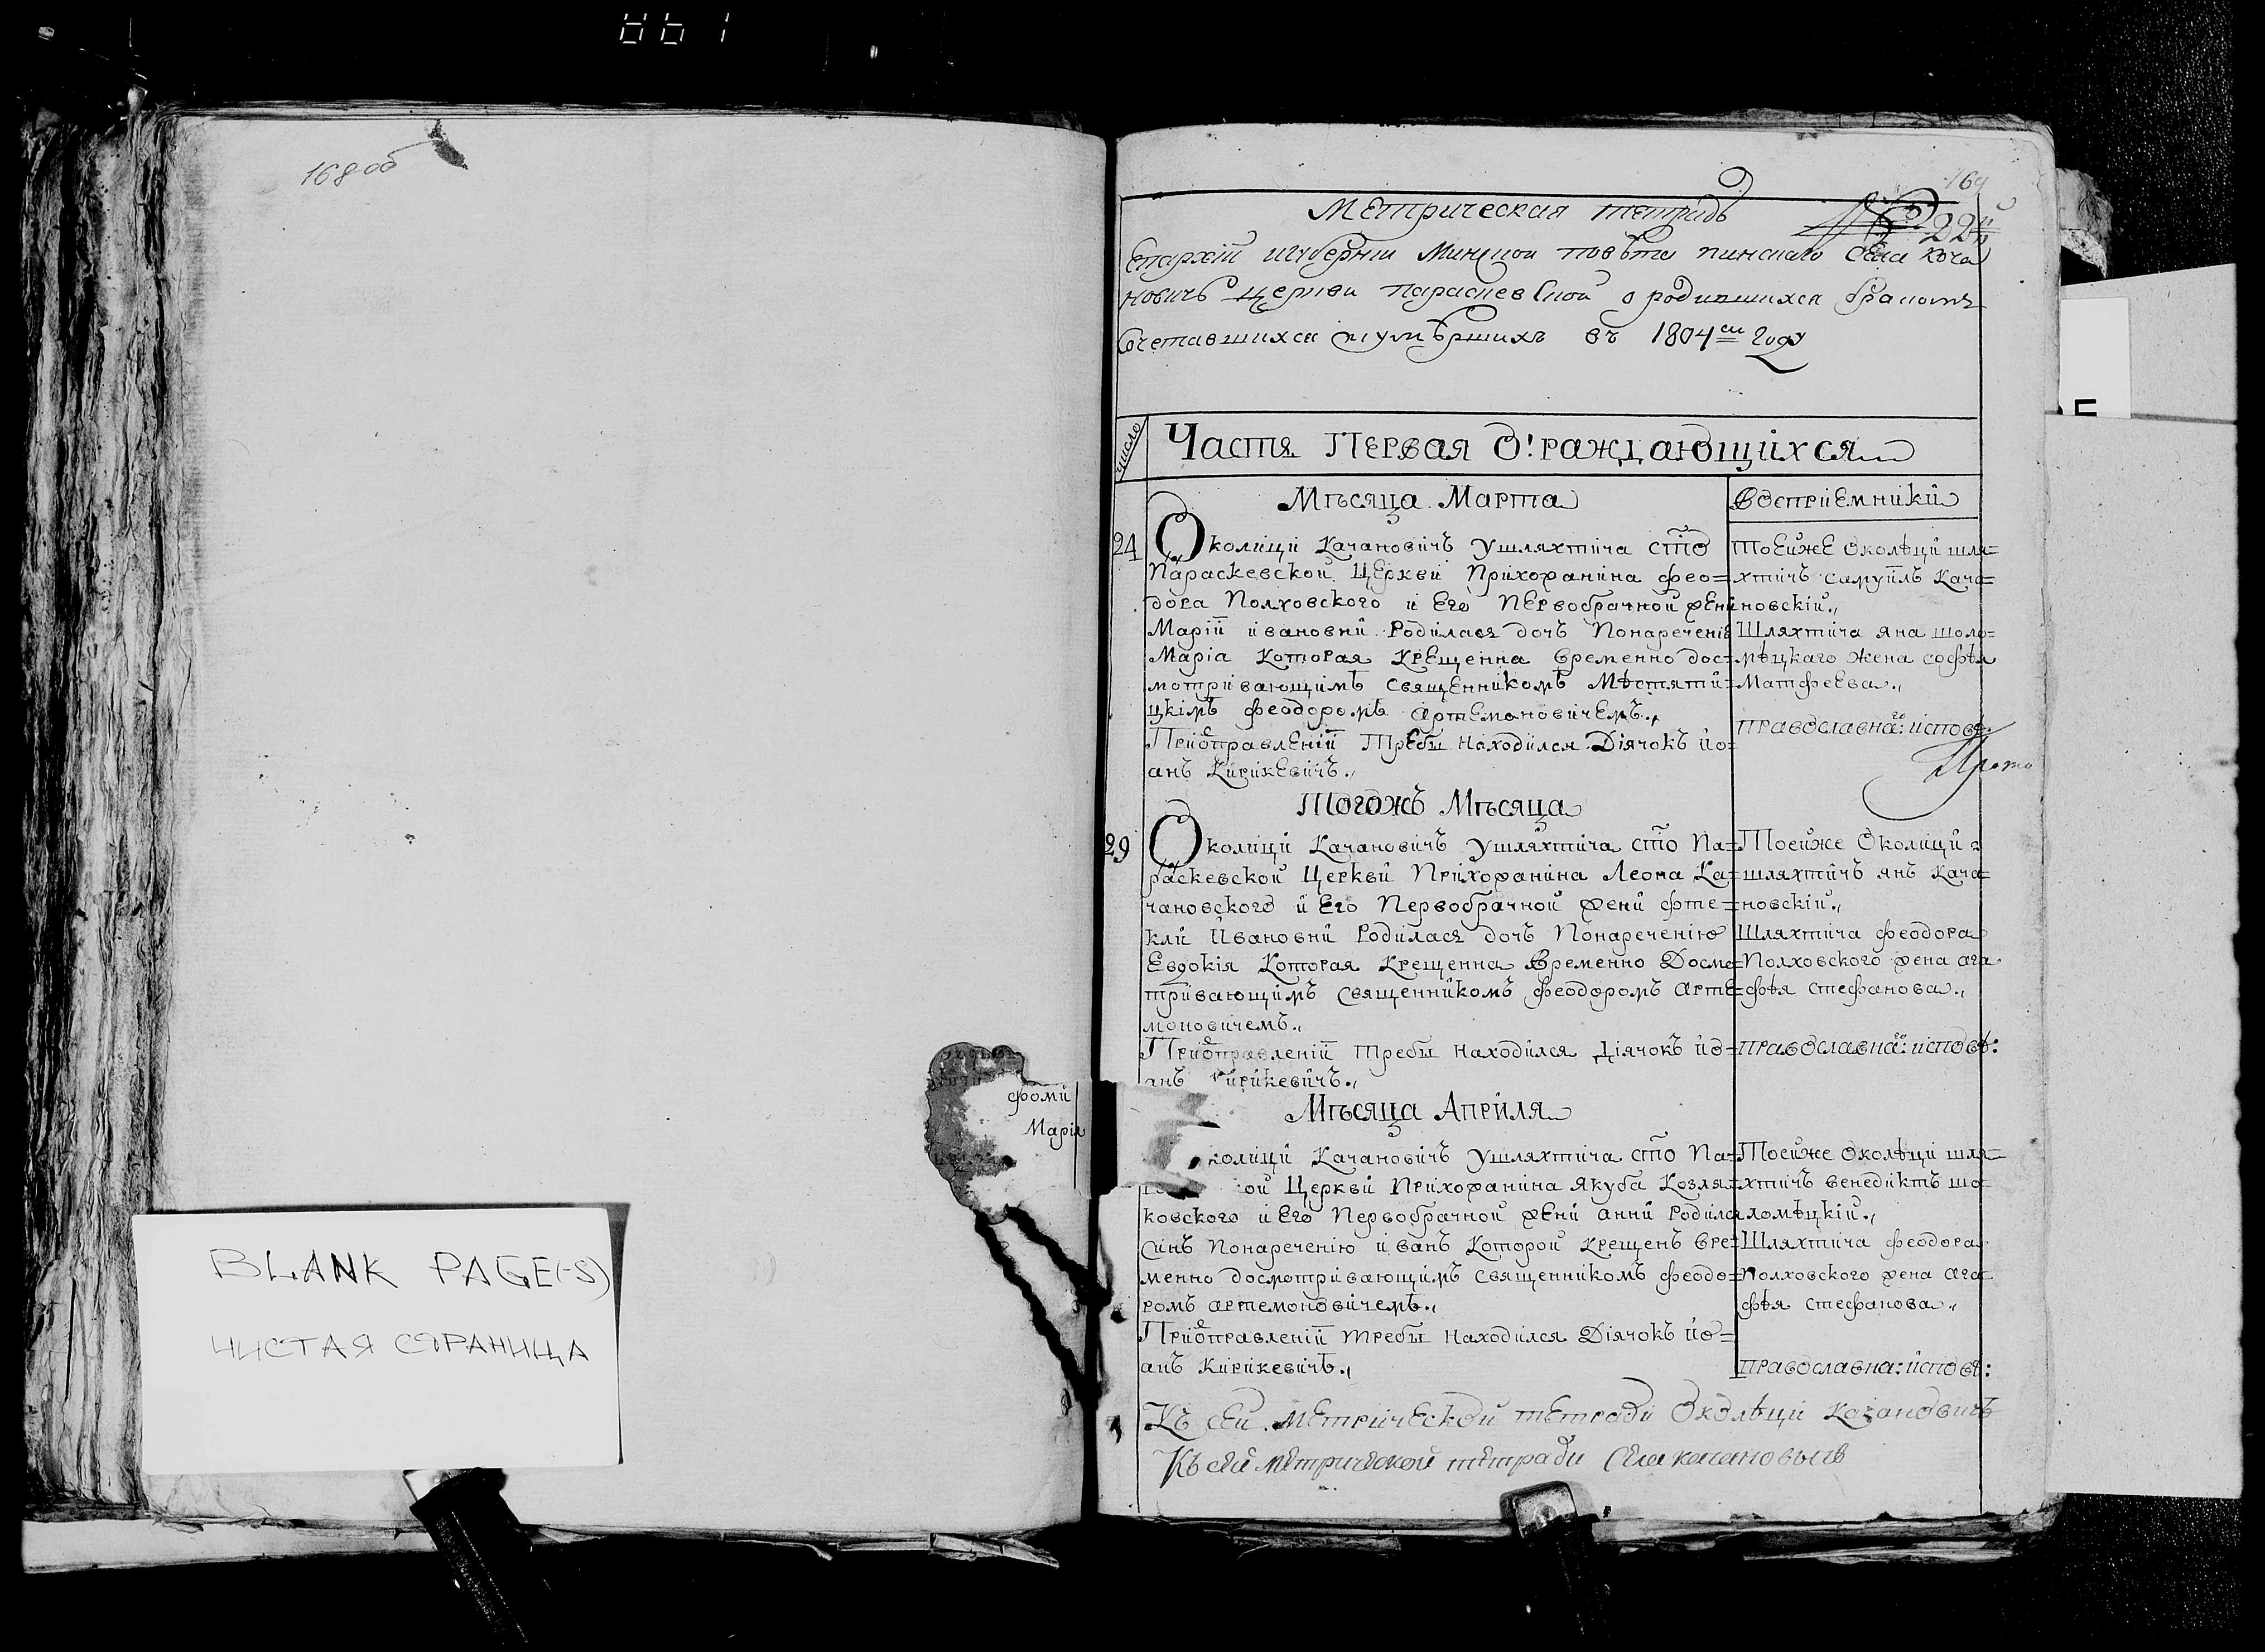 168 об
BLANK PAGE(-S)
ЧИСТАЯ СТРАНИЦА
фоми
Марія
169
Метрическая тетрадь
22й
Епархіи игуберніи Минскои повѣта пинскаго села коча
новичъ церкви параскевской о родившихся бракомъ
сочетавшихся иумѣршихъ въ 1804м году
число
Частя Первая О! раждающихся
Мѣсяца Марта
Воспріемники
24
Околици Качановичъ Ушляхтича сто
Параскевской Церкви Прихожанина Фео=
дора Полховского и Его Первобрачной жени
Маріи ивановни Родилася дочъ Понареченію
Маріа Которая Крещенна временно дос=
мотривающимъ священникомъ Мѣстяти=
цкімъ Феодоромъ Артемоновичемъ.,
Приотправленіи Требы Находился Діячокъ ио=
анъ Кирикевичъ.,
Тоейже Околѣци шля=
хтичъ самуилъ Кача=
новскій.,
Шляхтича яна шоло=
мѣцкаго жена софѣя
Матфеева.,
православнаго: исповѣ:
Прото
Тогожъ Мѣсяца
29
Околици Качановичъ Ушляхтича сто Па=
раскевской Церкви Прихожанина Леона Ка=
чановского и Его Первобрачной жени Фте=
кли Ивановни Родилася дочъ Понареченію
Евдокія Которая Крещенна Временно Досмо=
тривающимъ Священникомъ Феодоромъ Арте=
моновичемъ.,
Приотправленіи Требы Находился Діячокъ ио=
анъ Кирикевичъ.,
Тоейже Околици
шляхтичъ янъ Кача=
новскій.,
Шляхтича Феодора
Полховского жена ага
фѣя стефанова.,
православнаго: исповѣ:
Мѣсяца Априля
колици Качановичъ Ушляхтича сто Па=
ой Церкви Прихожанина Якуба Козля=
ковского и Его Первобрачной жени анни Родился
синъ Понареченію иванъ Которой крещенъ вре=
менно досмотривающимъ священникомъ Феодо=
ромъ артемоновичемъ.,
Приотправленіи требы Находился Діячокъ ио=
анъ Кирикевичъ.,
Тоейже Околѣци шля=
хтичъ венедиктъ шо
ломѣцкій.,
Шляхтича Феодора
Полховского жена ага
фѣя стефанова.,
православна: исповѣ:
Къ сей Метрической тетради Околѣци Качановичъ
Къ сей метрической тетради села качановычъ